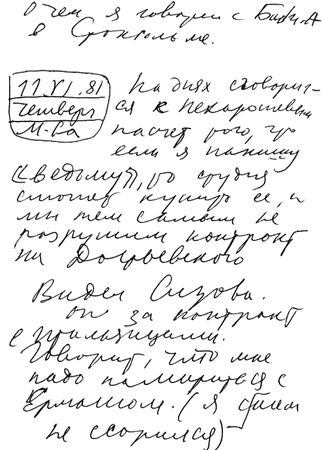 О чем я говорил с Биби А
в Стокгольме.
11.VI.81
Четверг
М-ва
На днях сговорит-
ся к Нехорошеву
насчет того, что
если я напишу
«Ведьму», то студия
сможет купить ее, и
мы тем самым не
разрушим контракт
на Достоевского
Видел Сизова.
Он за контракт
с итальянцами.
Говорит, что мне
надо помириться с
Ермашом. (я с ним
не ссорился)